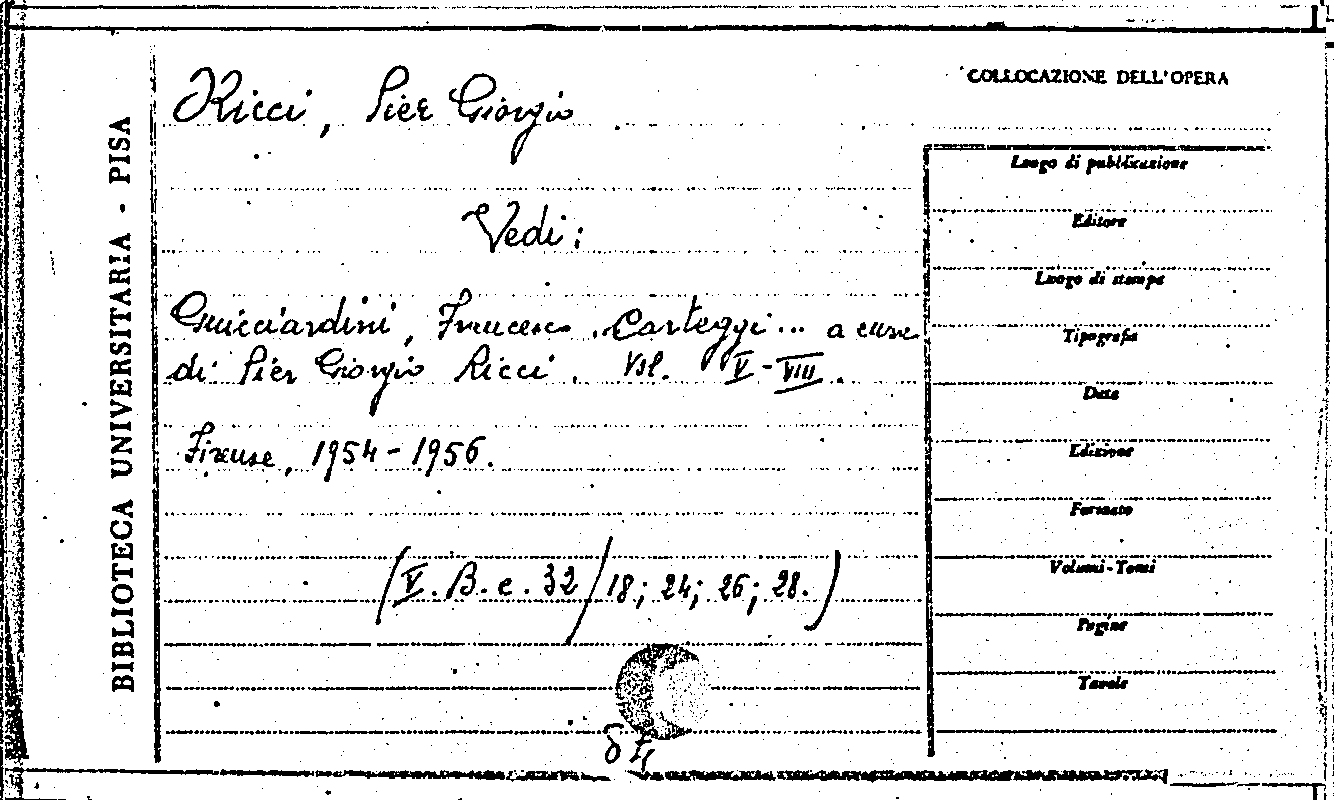 BIBLIOTECA UNIVERSITARIA - PISA
Ricci, Pier Giorgio
Vedi:
Guicciardini, Francesco. Carteggi... a cura
di Pier Giorgio Ricci. Vol. V-VIII.
Firenze, 1954-1956.
(V. B. c. 32/18; 24; 26; 28.)
COLLOCAZIONE DELL'OPERA
Luogo di pubblicazione
Editore
Luogo di stampa
Tipografia
Data
Edizione
Formato
Volumi-Tomi
Pagine
Tavole